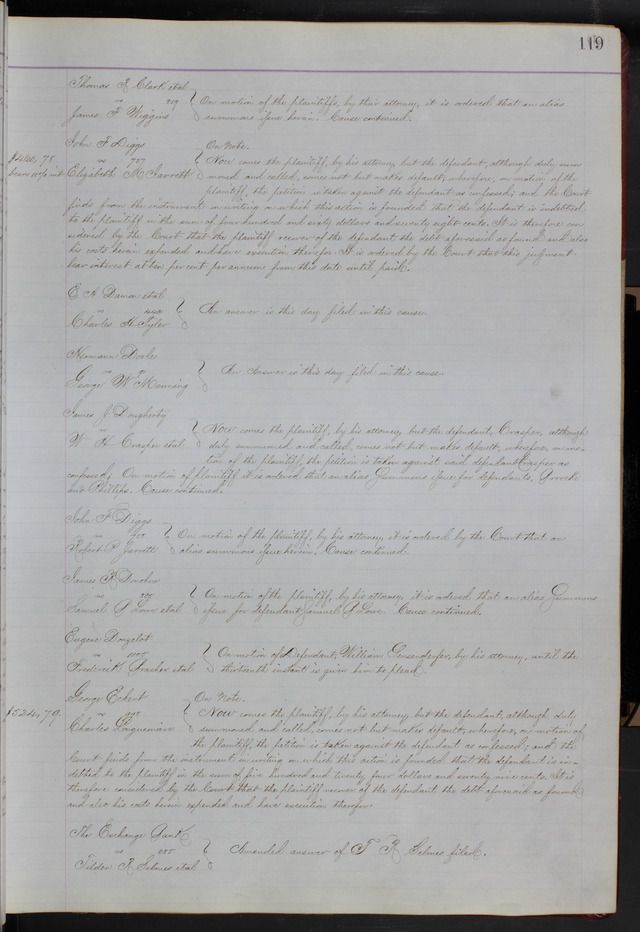 119
Thomas R Clark etal
vs 919
James F Wiggins
On motion of the plaintiffs, by their attorney, it is ordered that an alias
summons issue herein. Cause continued.
John F Diggs
vs 787
Elizabeth M Jarrett
$460.78
bears 10% int
On Note.
Now comes the plaintiff, by his attorney but the defendant, although duly sum
moned and called, comes not but makes default; wherefore, on motion of the
plaintiff, the petition is taken against the defendant as confessed; and the Court
finds from the instrument in writing on which this action is founded that the defendant is indebted
to the plaintiff in the sum of four hundred and sixty dollars and seventy eight cents. It is therefore con
sidered by the Court that the plaintiff recover of the defendant the debt aforesaid as found and also
his costs herein expended and have execution therefor. It is ordered by the Court that this judgment
bear interest at ten per cent per annum from this date until paid.
E A Damon etal
vs
Charles H Tyler
An answer is this day filed in this cause.
Hermann
vs
George W Menning
An Answer is this day filed in this cause
James J Dougherty
vs
W H Crasper etal
Now comes the plaintiff, by his attorney, but the defendant, Crasper, although
duly summoned and called, comes not but makes default, wherefore, on mo
tion of the plaintiff, the petition is taken against said defendant Crasper as
confessed. On motion of plaintiff it is ordered that an alias Summons issue for defendants,
and Phillips. Cause continued.
John F Diggs
vs
Robert P Jarrett
On motion of the plaintiff, by his attorney, it is ordered by the Court that an
alias summons issue herein. Cause continued.
James R
vs
Samuel P Lowe etal
On motion of the plaintiff, by his attorney, it is ordered that an alias Summons
issue for defendant Samuel P Lowe. Cause continued.
Eugene Dozelot
vs
Frederick etal
On motion of Defendant, William Gensendorfer, by his attorney, until the
thirteenth instant is given him to plead.
George Eckert
vs
Charles
$524.79.
On Note.
Now comes the plaintiff, by his attorney, but the defendant, although duly
summoned and called, comes not but makes default; wherefore, on motion of
the plaintiff, the petition is taken against the defendant as confessed; and the
Court finds from the instrument in writing on which this action is founded that the defendant is in-
debted to the plaintiff in the sum of five hundred and twenty four dollars and seventy nine cents. It is
therefore considered by the Court that the plaintiff recover of the defendant the debt aforesaid as found
and also his costs herein expended and have execution therefor.
The Exchange Bank
vs
Tilden R Selmes etal
Amended answer of T R Selmes filed.